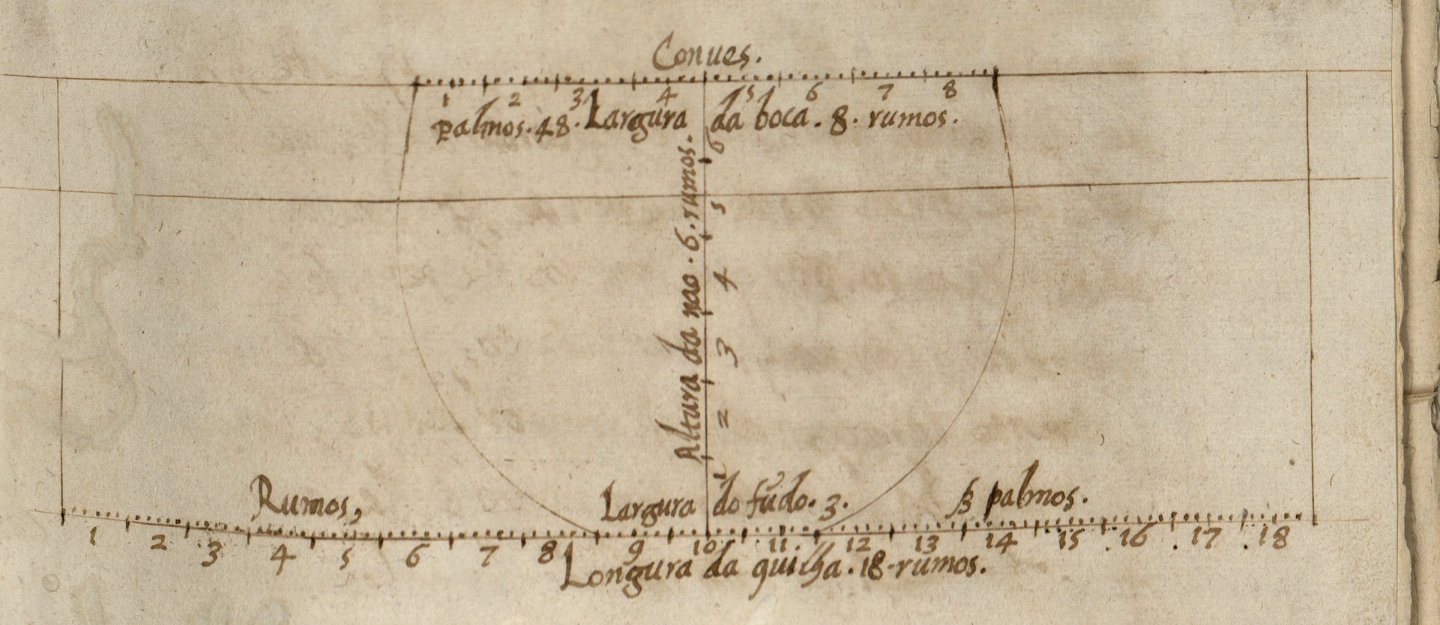 Conues.
1 2 3 4 5 6 7 8
palmos. 48. Largura da boca. 8. rumos.
Altura da nao. 6. rumos.
6
5
4
3
2
1
Rumos, Largura do fũdo. 3. palmos.
1 2 3 4 5 6 7 8 9 10 11 12 13 14 15 16 17 18
Longura da quilha. 18. rumos.